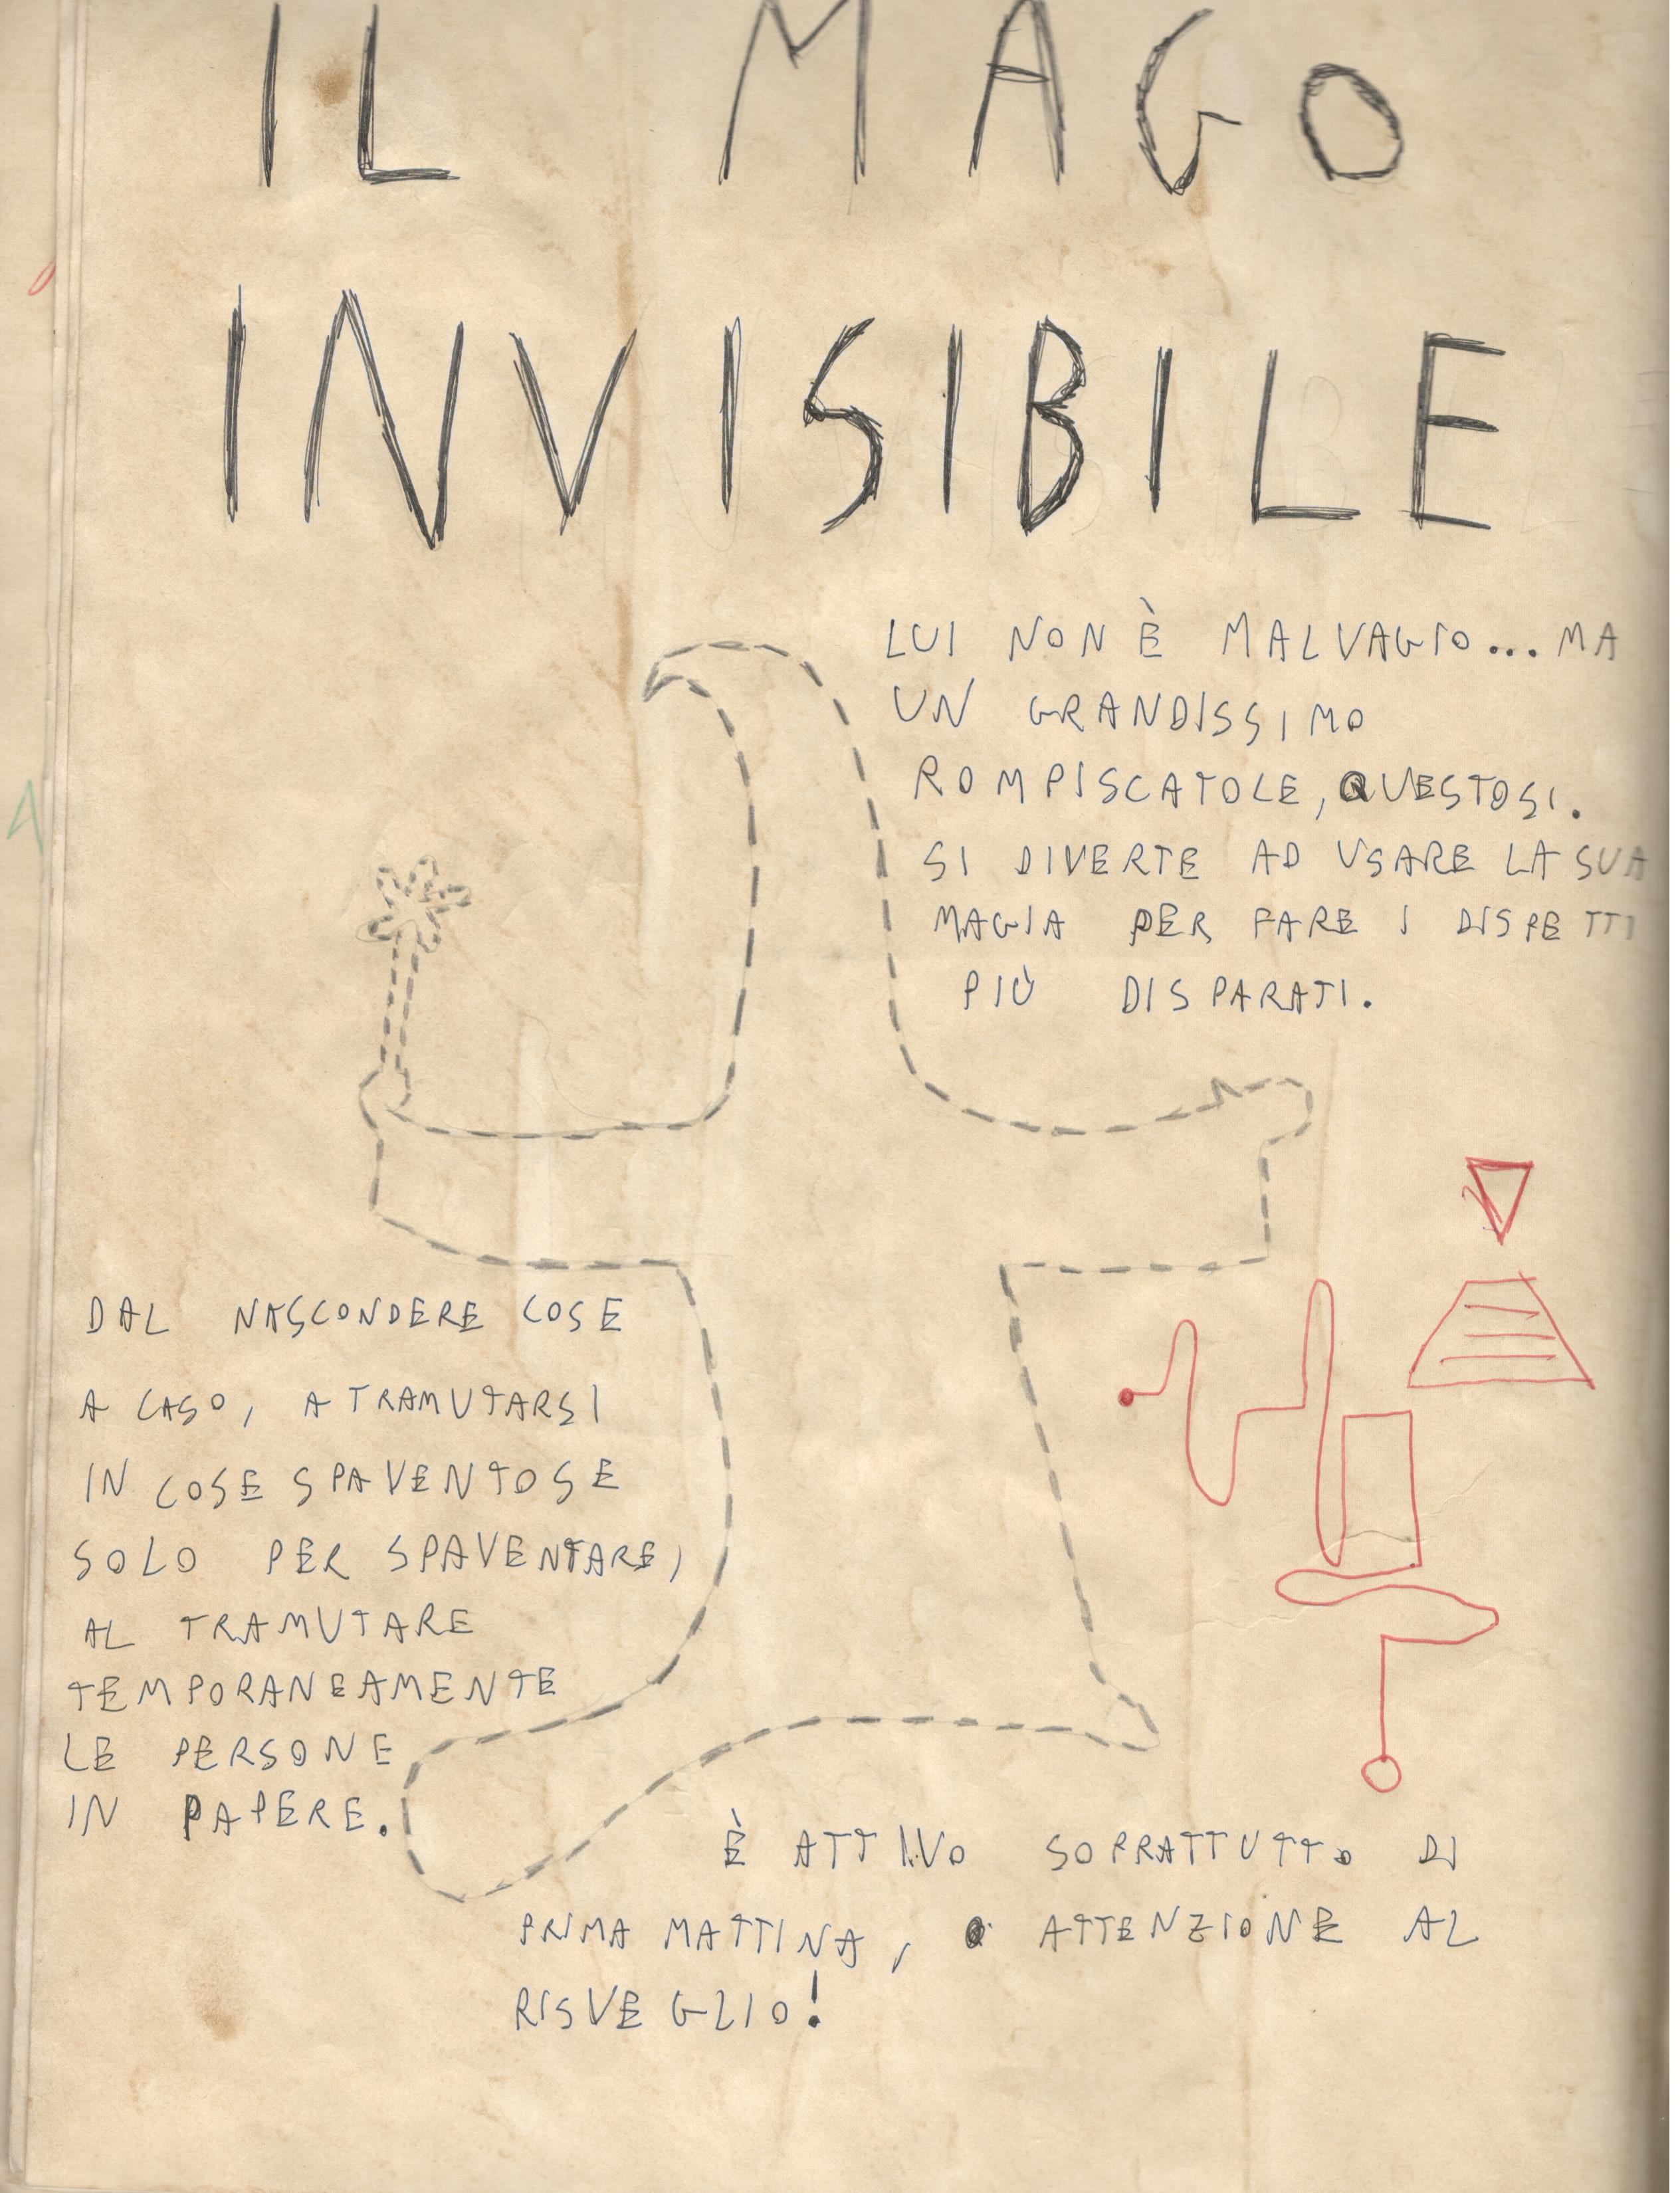 IL MAGO
INVISIBILE
LUI NON È MALVAGIO... MA
UN GRANDISSIMO
ROMPISCATOLE, QUESTO SI.
SI DIVERTE AD USARE LA SUA
MAGIA PER FARE I DISPETTI
PIÙ DISPARATI.
DAL NASCONDERE COSE
A CASO, A TRAMUTARSI
IN COSE SPAVENTOSE
SOLO PER SPAVENTARE,
AL TRAMUTARE
TEMPORANEAMENTE
LE PERSONE
IN PAPERE.
È ATTIVO SOPRATTUTTO DI
PRIMA MATTINA, ATTENZIONE AL
RISVEGLIO!